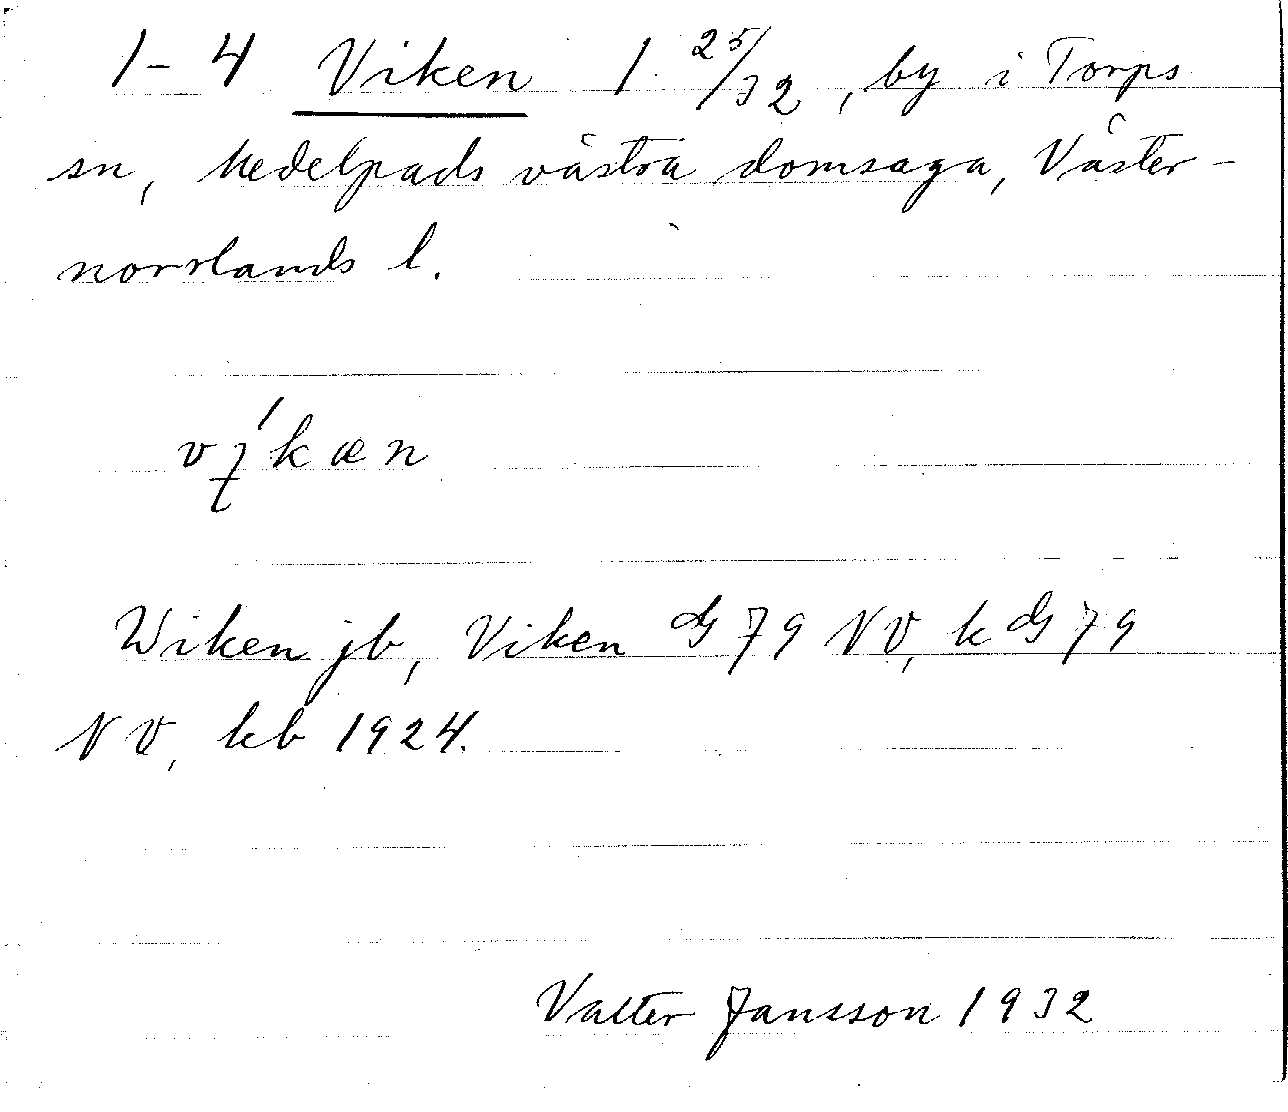 1-4 Viken 1 25/32, by i Torps
sn, Medelpads västra domsaga, Väster-
norrlands l.
ví̯kæn
Wiken jb, Viken G 79 NV, k G 79
NV, kb 1924.
Valter Jansson 1932